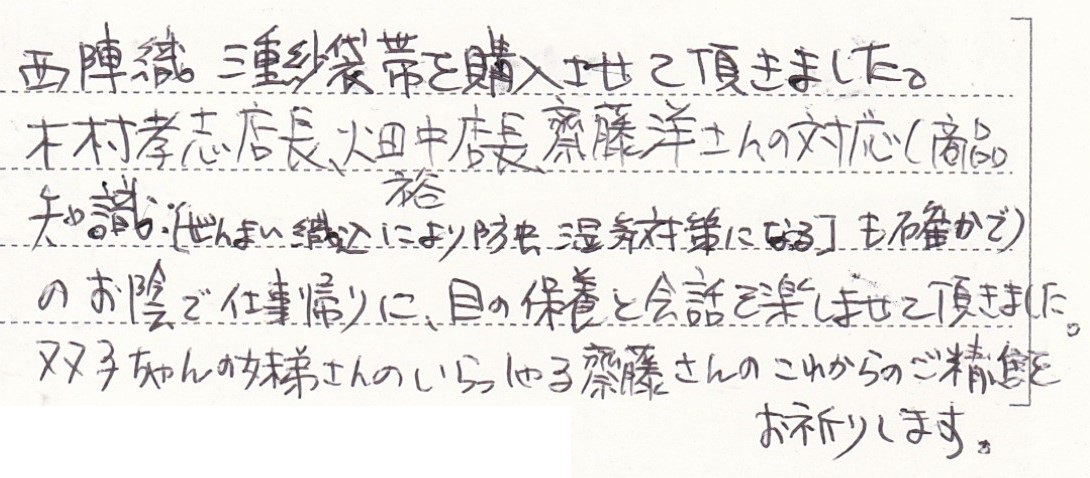 西陣織 三重紗袋帯を購入させて頂きました。
木村孝志店長、畑中裕店長、齋藤洋さんの対応(商品
知識:「ぜんまい織込により防虫 湿気対策になる」も確かで)
のお陰で仕事帰りに、目の保養と会話を楽しませて頂きました。
双子ちゃんの妹様さんのいらっしゃる齋藤さんのこれからのご精進を
お祈りします。